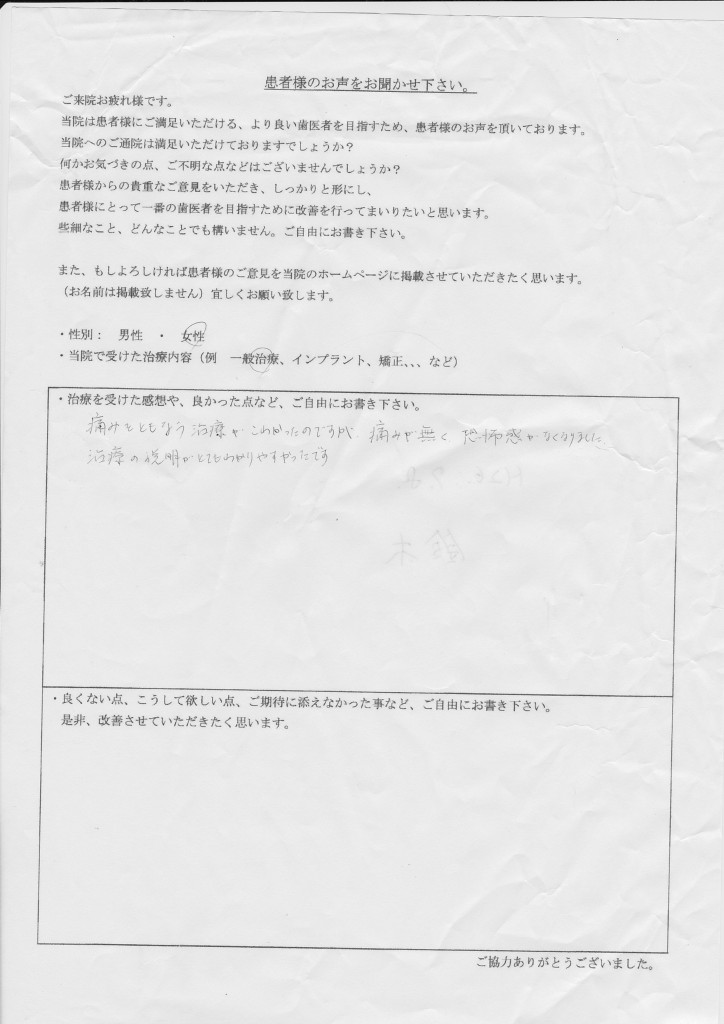 患者様のお声をお聞かせ下さい。
ご来院お疲れ様です。
当院は患者様にご満足いただける、より良い歯医者を目指すため、患者様のお声を頂いております。
当院へのご通院は満足いただけておりますでしょうか？
何かお気づきの点、ご不明な点などはございませんでしょうか？
患者様からの貴重なご意見をいただき、しっかりと形にし、
患者様にとって一番の歯医者を目指すために改善を行ってまいりたいと思います。
些細なこと、どんなことでも構いません。ご自由にお書き下さい。
また、もしよろしければ患者様のご意見を当院のホームページに掲載させていただきたく思います。
（お名前は掲載致しません）宜しくお願い致します。
・性別： 男性 ・ 女性
・当院で受けた治療内容（例 一般治療、インプラント、矯正、、、など）
・治療を受けた感想や、良かった点など、ご自由にお書き下さい。
痛みをともなう治療がこわかったのですが 痛みが無く 恐怖感がなくなりました
治療の説明がとてもわかりやすかったです
鈴木
・良くない点、こうして欲しい点、ご期待に添えなかった事など、ご自由にお書き下さい。
是非、改善させていただきたく思います。
ご協力ありがとうございました。